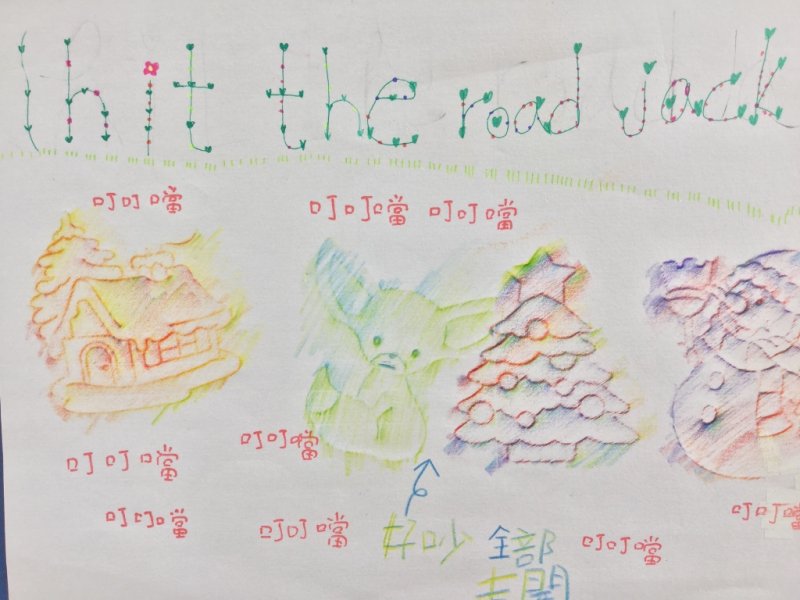 I hit the road jack
叮叮噹 叮叮噹 叮叮噹
叮叮噹
叮叮噹
叮叮噹 叮叮噹
叮叮噹 好吵 全部 叮叮噹
開